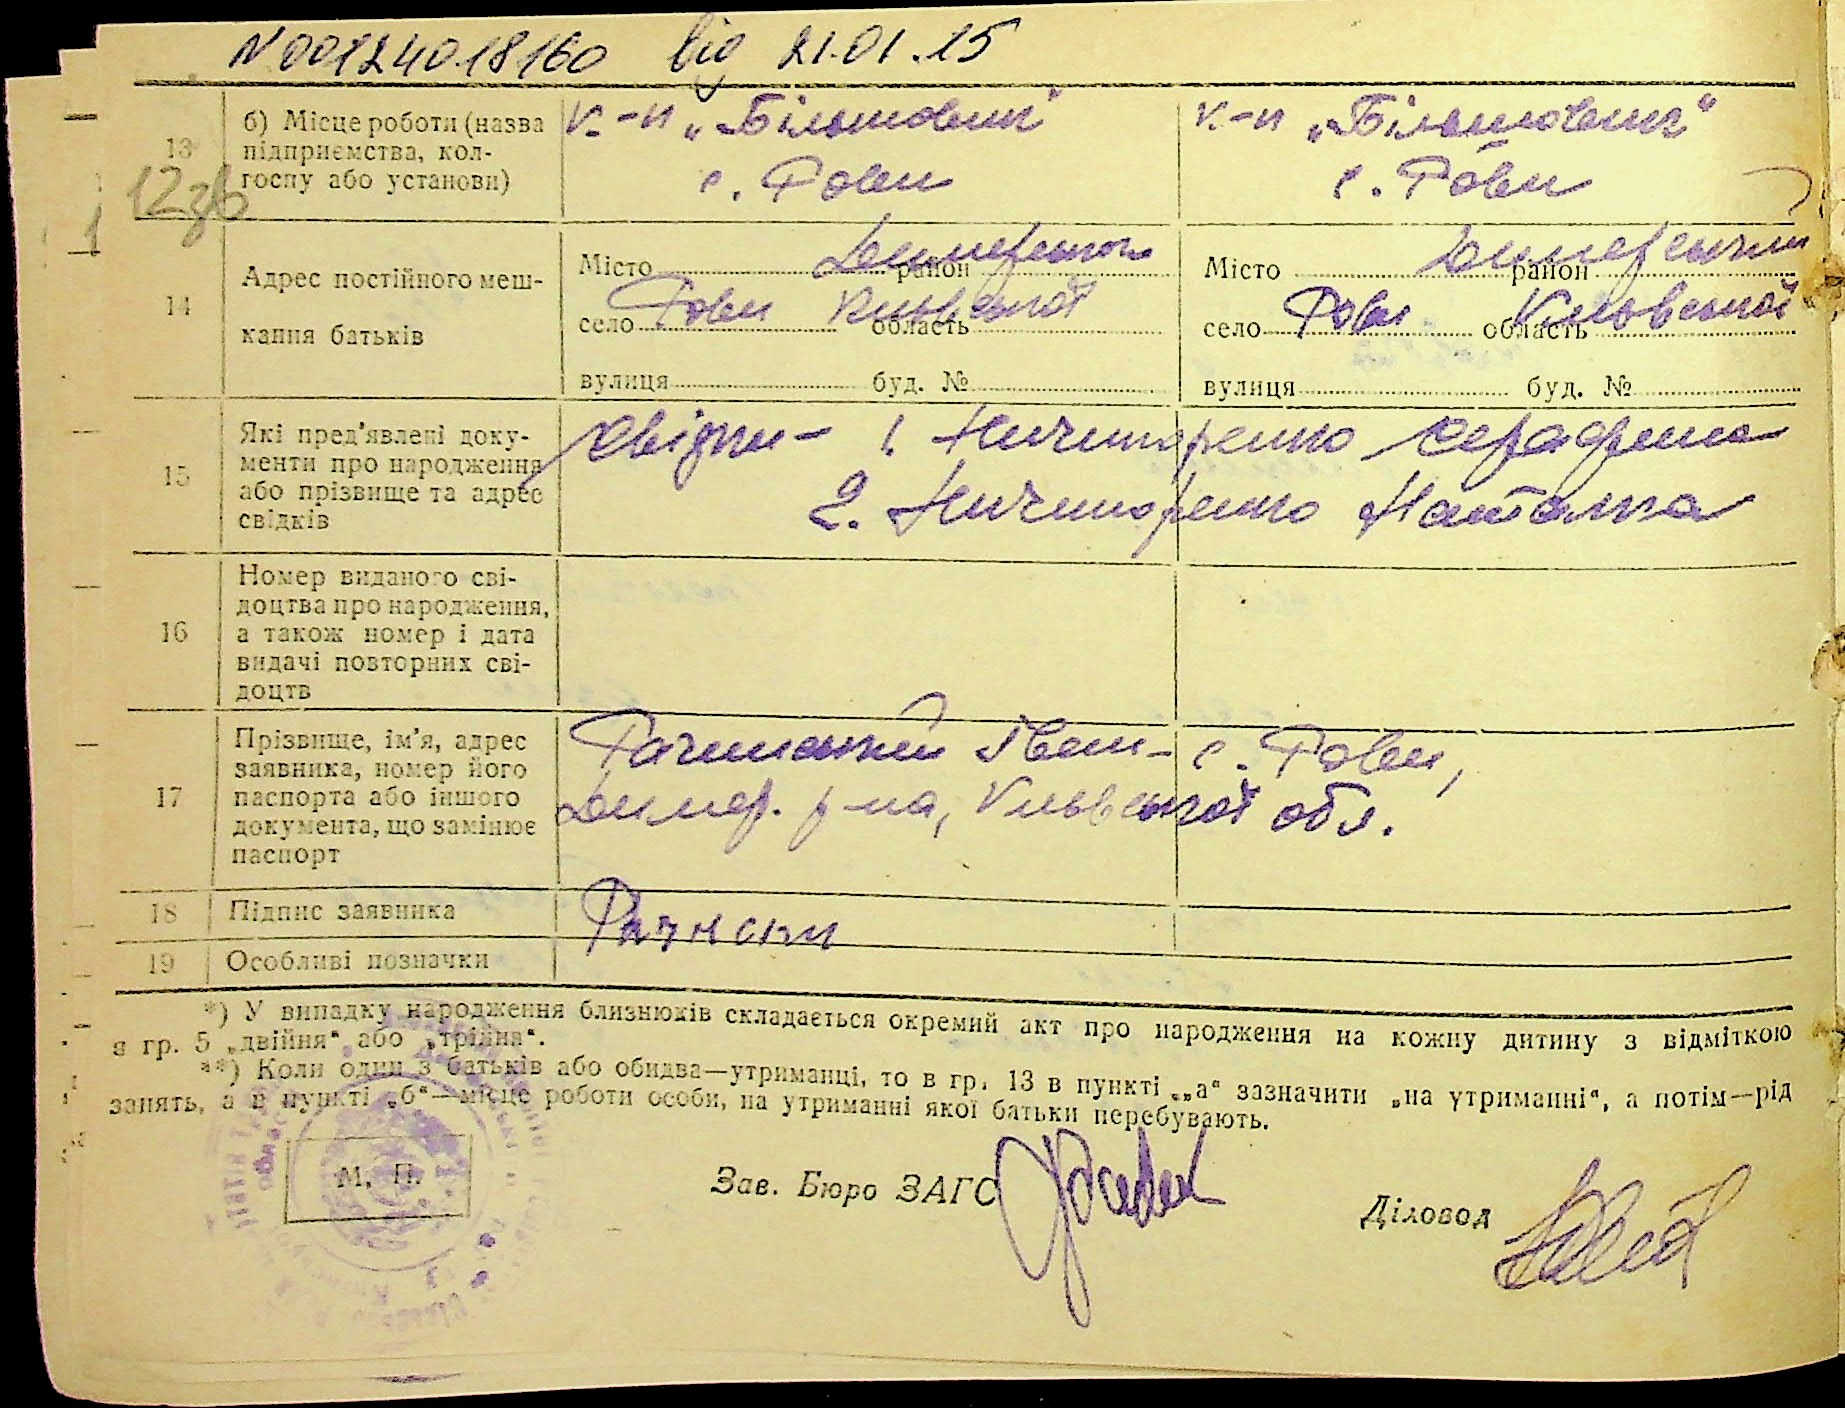 N 00124018160 від 21.01.15
13
б) Місце роботи (назва підприємства, колгоспу або установи)
к-п „Більшовик"
с. Рови
к-п „Більшовик"
с. Рови
12зв
1
14
Адрес постійного мешкання батьків
Місто район Димерського
село Рови область Київської
вулиця буд. №
Місто район Димерський
село Рови область Київської
вулиця буд. №
15
Які пред'явлені документи про народження або прізвище та адрес свідків
Свідки – 1. Ничипоренко Серафима
2. Ничипоренко Наталка
16
Номер виданого свідоцтва про народження, а також номер і дата видачі повторних свідоцтв
17
Прізвище, ім'я, адрес заявника, номер його паспорта або іншого документа, що замінює паспорт
Рачинський Іван – с. Рови,
Димер. р-на, Київської обл.
18
Підпис заявника
19
Особливі позначки
*) У випадку народження близнюків складається окремий акт про народження на кожну дитину з відміткою
в гр. 5 „двійня" або „трійня".
**) Коли один з батьків або обидва—утриманці, то в гр. 13 в пункті „„а" зазначити „на утриманні", а потім—рід
занять, а в пункті „б"—місце роботи особи, на утриманні якої батьки перебувають.
М. П.
Зав. Бюро ЗАГС
Діловод